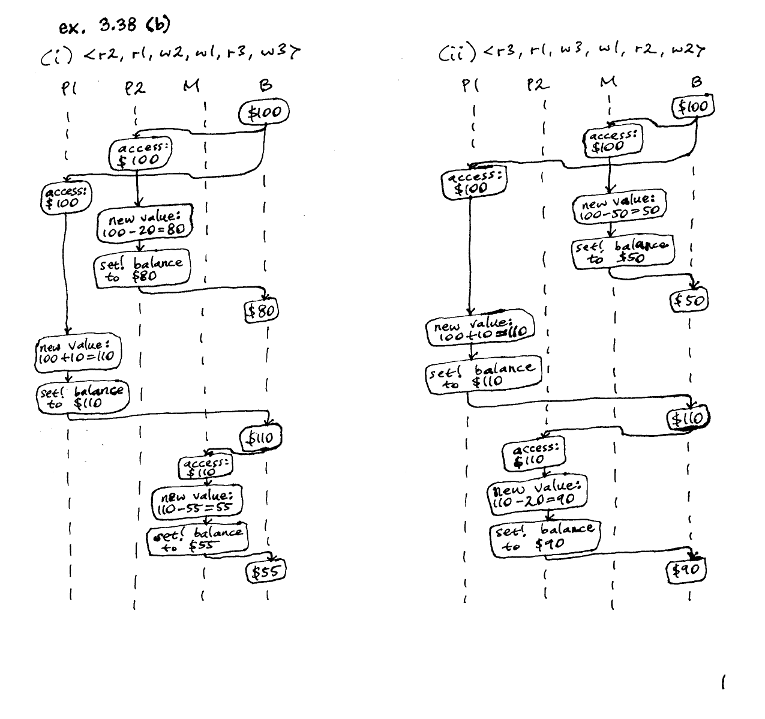 ex. 3.38 (b)
(i) <r2, r1, w2, w1, r3, w3>
P1 P2 M B
$100
access:
$100
access:
$100
new value:
100-20=80
set! balance
to $80
$80
new value:
100+10=110
set! balance
to $110
$110
access:
$110
new value:
110-55=55
set! balance
to $55
$55
(ii) <r3, r1, w3, w1, r2, w2>
P1 P2 M B
$100
access:
$100
access:
$100
new value:
100-50=50
set! balance
to $50
$50
new value:
100+10=110
set! balance
to $110
$110
access:
$110
new value:
110-20=90
set! balance
to $90
$90
1